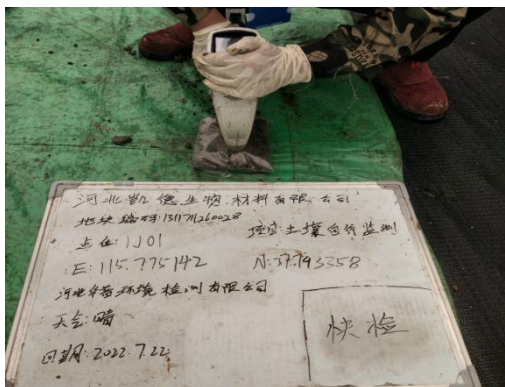 河北凯德生物材料有限公司
地块编码:1311711260028
点位:1J01 项目:土壤自行监测
E:115.775142 N:37.793358
河北华普环境检测有限公司
天气:晴
快检
日期:2022.7.22